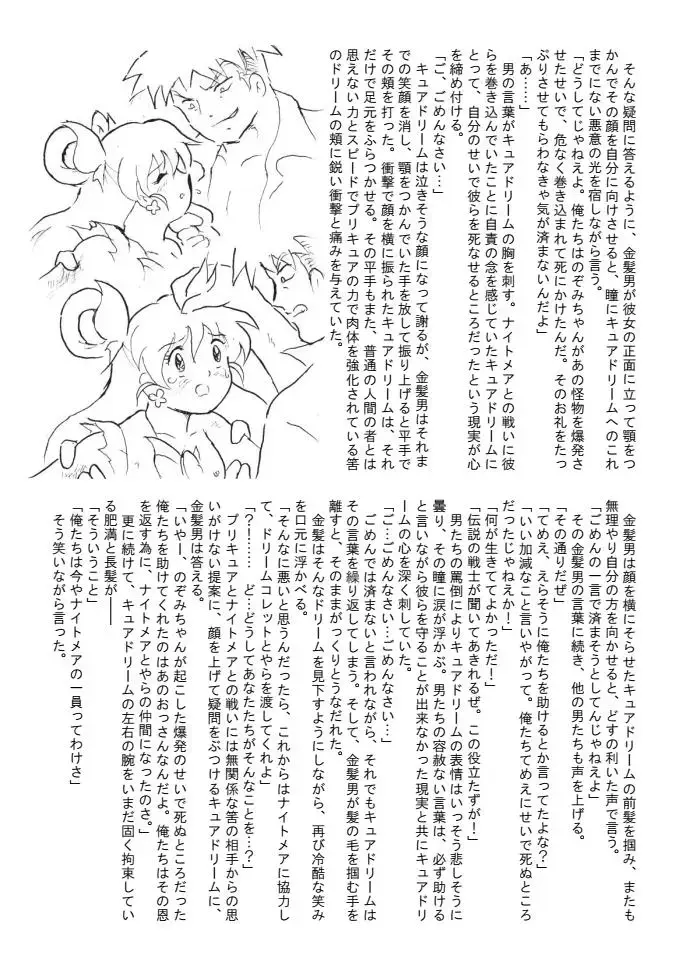 そんな疑問に答えるように、金髪男が彼女の正面に立って顎をつ
かんでその顔を自分に向けさせると、瞳にキュアドリームへのこれ
までにない悪意の光を宿しながら言う。
「どうしてじゃねえよ。俺たちはのぞみちゃんがあの怪物を爆発さ
せたせいで、危なく巻き込まれて死にかけたんだ。そのお礼をたっ
ぷりさせてもらわなきゃ気が済まないんだよ」
「あ……」
男の言葉がキュアドリームの胸を刺す。ナイトメアとの戦いに彼
らを巻き込んでいたことに自責の念を感じていたキュアドリームに
とって、自分のせいで彼らを死なせるところだったという現実が心
を締め付ける。
「ご、ごめんなさい…」
キュアドリームは泣きそうな顔になって謝るが、金髪男はそれま
での笑顔を消し、顎をつかんでいた手を放して振り上げると平手で
その頬を打った。衝撃で顔を横に振られたキュアドリームは、それ
だけで足元をふらつかせる。その平手もまた、普通の人間の者とは
思えない力とスピードでプリキュアの力で肉体を強化されている筈
のドリームの頬に鋭い衝撃と痛みを与えていた。
金髪男は顔を横にそらせたキュアドリームの前髪を掴み、またも
無理やり自分の方を向かせると、どすの利いた声で言う。
「ごめんの一言で済まそうとしてんじゃねえよ」
その金髪男の言葉に続き、他の男たちも声を上げる。
「その通りだぜ」
「てめえ、えらそうに俺たちを助けるとか言ってたよな？」
「いい加減なこと言いやがって。俺たちてめえにせいで死ぬところ
だったじゃねえか！」
「何が生きててよかっただ！」
「伝説の戦士が聞いてあきれるぜ。この役立たずが！」
男たちの罵倒によりキュアドリームの表情はいっそう悲しそうに
曇り、その瞳に涙が浮かぶ。男たちの容赦ない言葉は、必ず助ける
と言いながら彼らを守ることが出来なかった現実と共にキュアドリ
ームの心を深く刺していた。
「ご…ごめんなさい…ごめんなさい…」
ごめんでは済まないと言われながら、それでもキュアドリームは
その言葉を繰り返してしまう。そして、金髪男が髪の毛を掴む手を
離すと、そのままがっくりとうなだれた。
金髪はそんなドリームを見下すようにしながら、再び冷酷な笑み
を口元に浮かべる。
「そんなに悪いと思うんだったら、これからはナイトメアに協力し
て、ドリームコレットとやらを渡してくれよ」
「？！……　ど…どうしてあなたたちがそんなことを…？」
プリキュアとナイトメアとの戦いには無関係な筈の相手からの思
いがけない提案に、顔を上げて疑問をぶつけるキュアドリームに、
金髪男は答える。
「いやー、のぞみちゃんが起こした爆発のせいで死ぬところだった
俺たちを助けてくれたのはあのおっさんなんだよ。俺たちはその恩
を返す為に、ナイトメアとやらの仲間になったのさ。」
更に続けて、キュアドリームの左右の腕をいまだ固く拘束してい
る肥満と長髪が――
「そういうこと」
「俺たちは今やナイトメアの一員ってわけさ」
そう笑いながら言った。